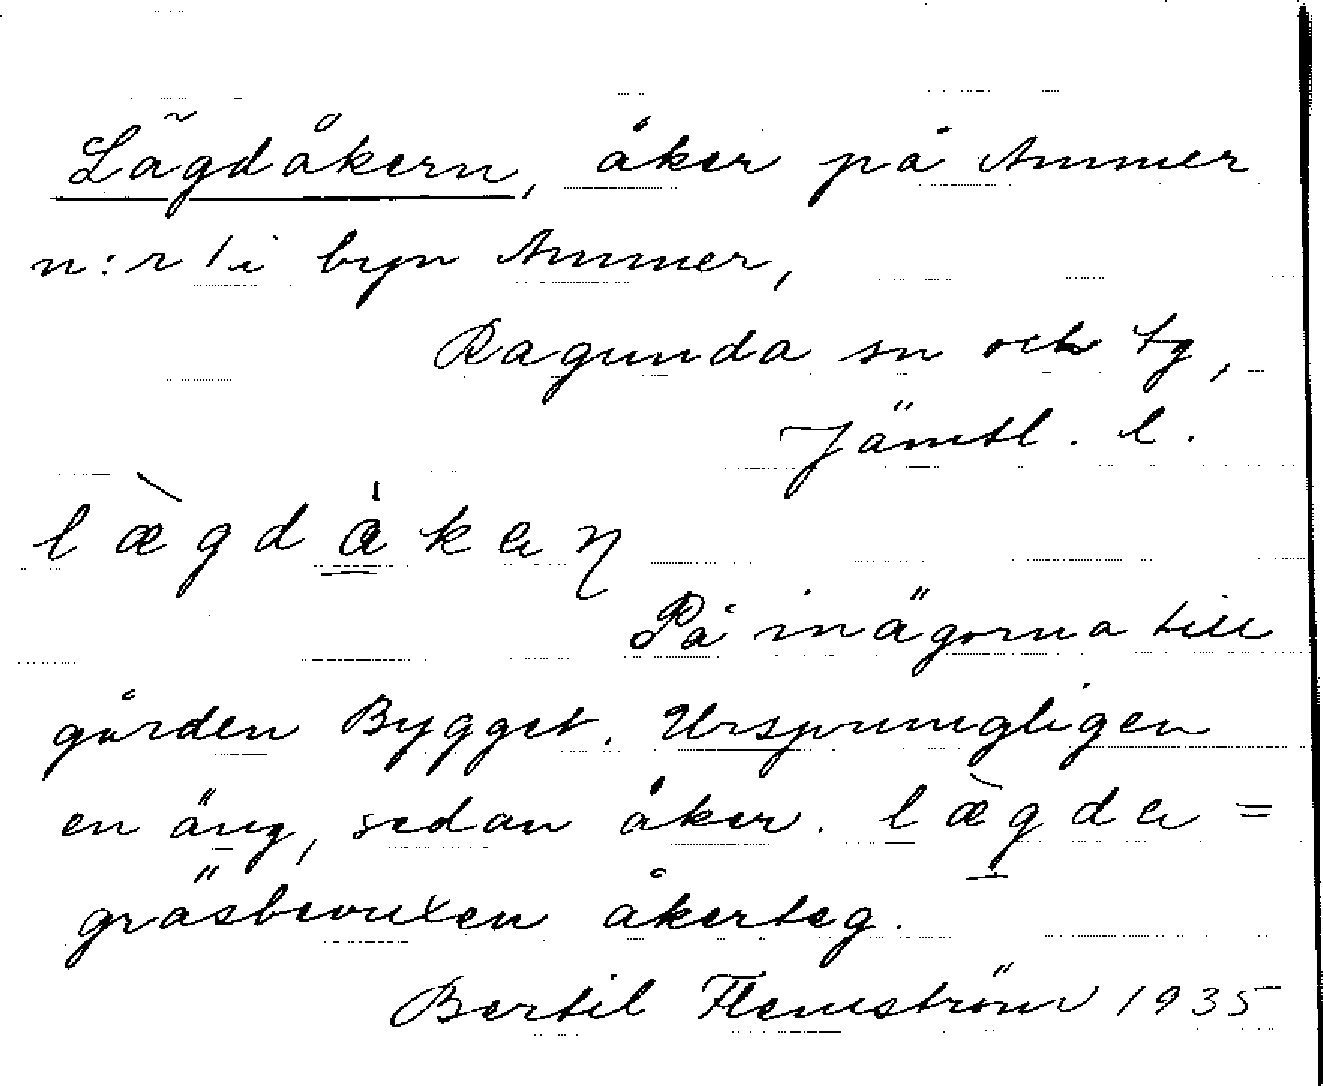 Lägdåkern, åker på Ammer
n:r 1 i byn Ammer,
Ragunda sn och tg,
Jämtl. l.
læ̀gdåkaη
På inägorna till
gården Bygget. Ursprungligen
en äng, sedan åker. læ̀gda =
gräsbevuxen åkerteg.
Bertil Flemström 1935